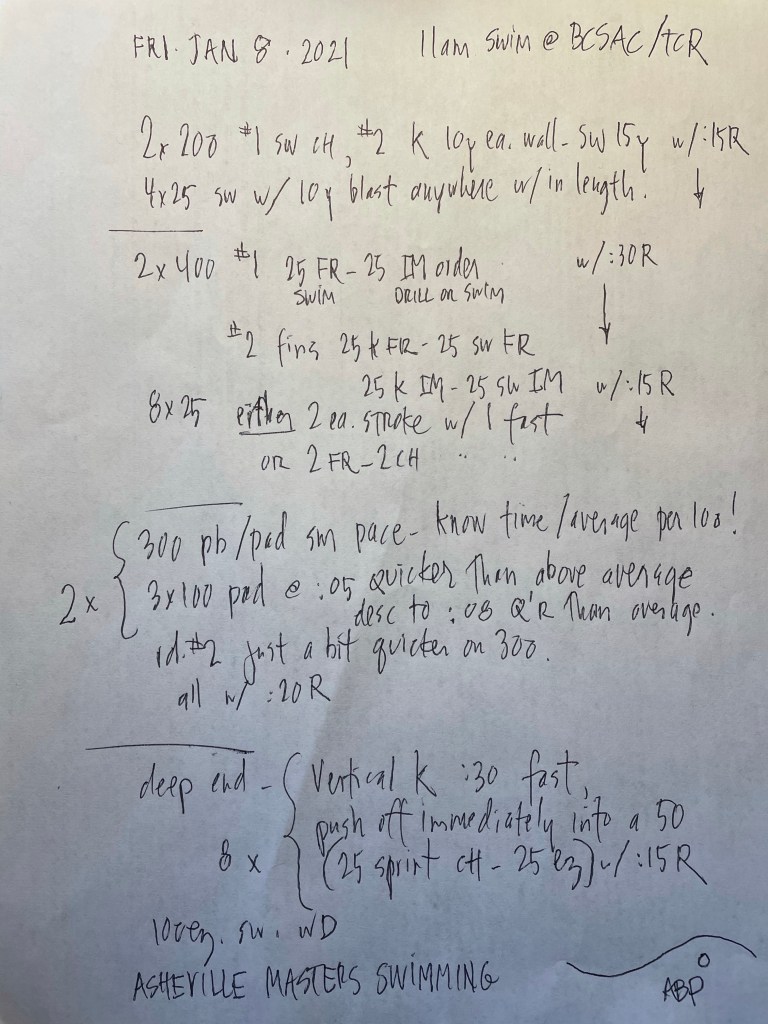 FRI. JAN 8. 2021 11am swim @ BCSAC/TCR
2x 200 #1 sw CH, #2 K 10y ea. wall - sw 15y w/:15R
4x25 sw w/ 10y blast anywhere w/in length. ↓
2x400 #1 25 FR - 25 IM order w/:30R
SWIM DRILL OR SWIM ↓
#2 fins 25 K FR - 25 sw FR
25 K IM - 25 sw IM w/:15R
8x25 either 2 ea. STROKE w/ 1 fast ↓
OR 2 FR - 2 CH " "
300 pb/pad sm pace - know time/average per 100!
2x { 3x100 pad @ :05 quicker than above average
desc to :08 Q'R than average.
rd. #2 just a bit quicker on 300.
all w/ :20R
deep end - { Vertical K :30 fast,
push off immediately into a 50
8 x (25 sprint CH - 25 ez) w/:15R
100 ez. sw. WD
ASHEVILLE MASTERS SWIMMING
ABP